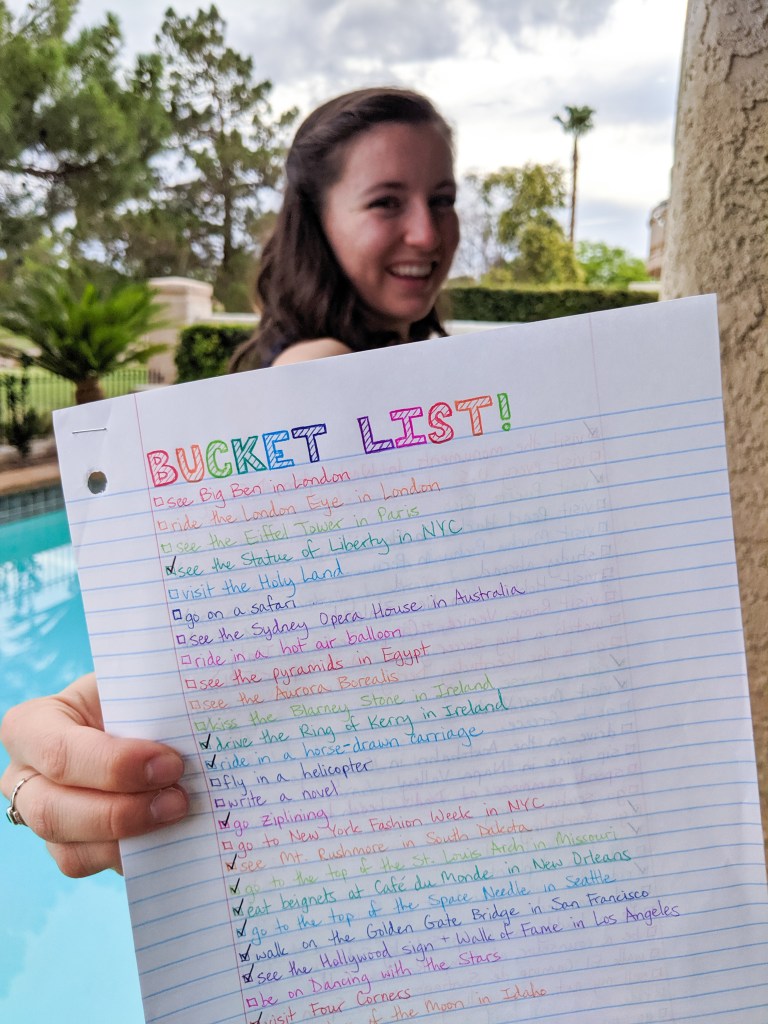 BUCKET LIST!
see Big Ben in London
ride the London Eye in London
see the Eiffel Tower in Paris
see the Statue of Liberty in NYC
visit the Holy Land
go on a safari
see the Sydney Opera House in Australia
ride in a hot air balloon
see the pyramids in Egypt
see the Aurora Borealis
kiss the Blarney Stone in Ireland
drive the Ring of Kerry in Ireland
ride in a horse-drawn carriage
fly in a helicopter
write a novel
go ziplining
go to New York Fashion Week in NYC
see Mt. Rushmore in South Dakota
go to the top of the St. Louis Arch in Missouri
eat beignets at Café du Monde in New Orleans
go to the top of the Space Needle in Seattle
walk on the Golden Gate Bridge in San Francisco
see the Hollywood sign + Walk of Fame in Los Angeles
be on Dancing with the Stars
visit Four Corners
of the Moon in Idaho